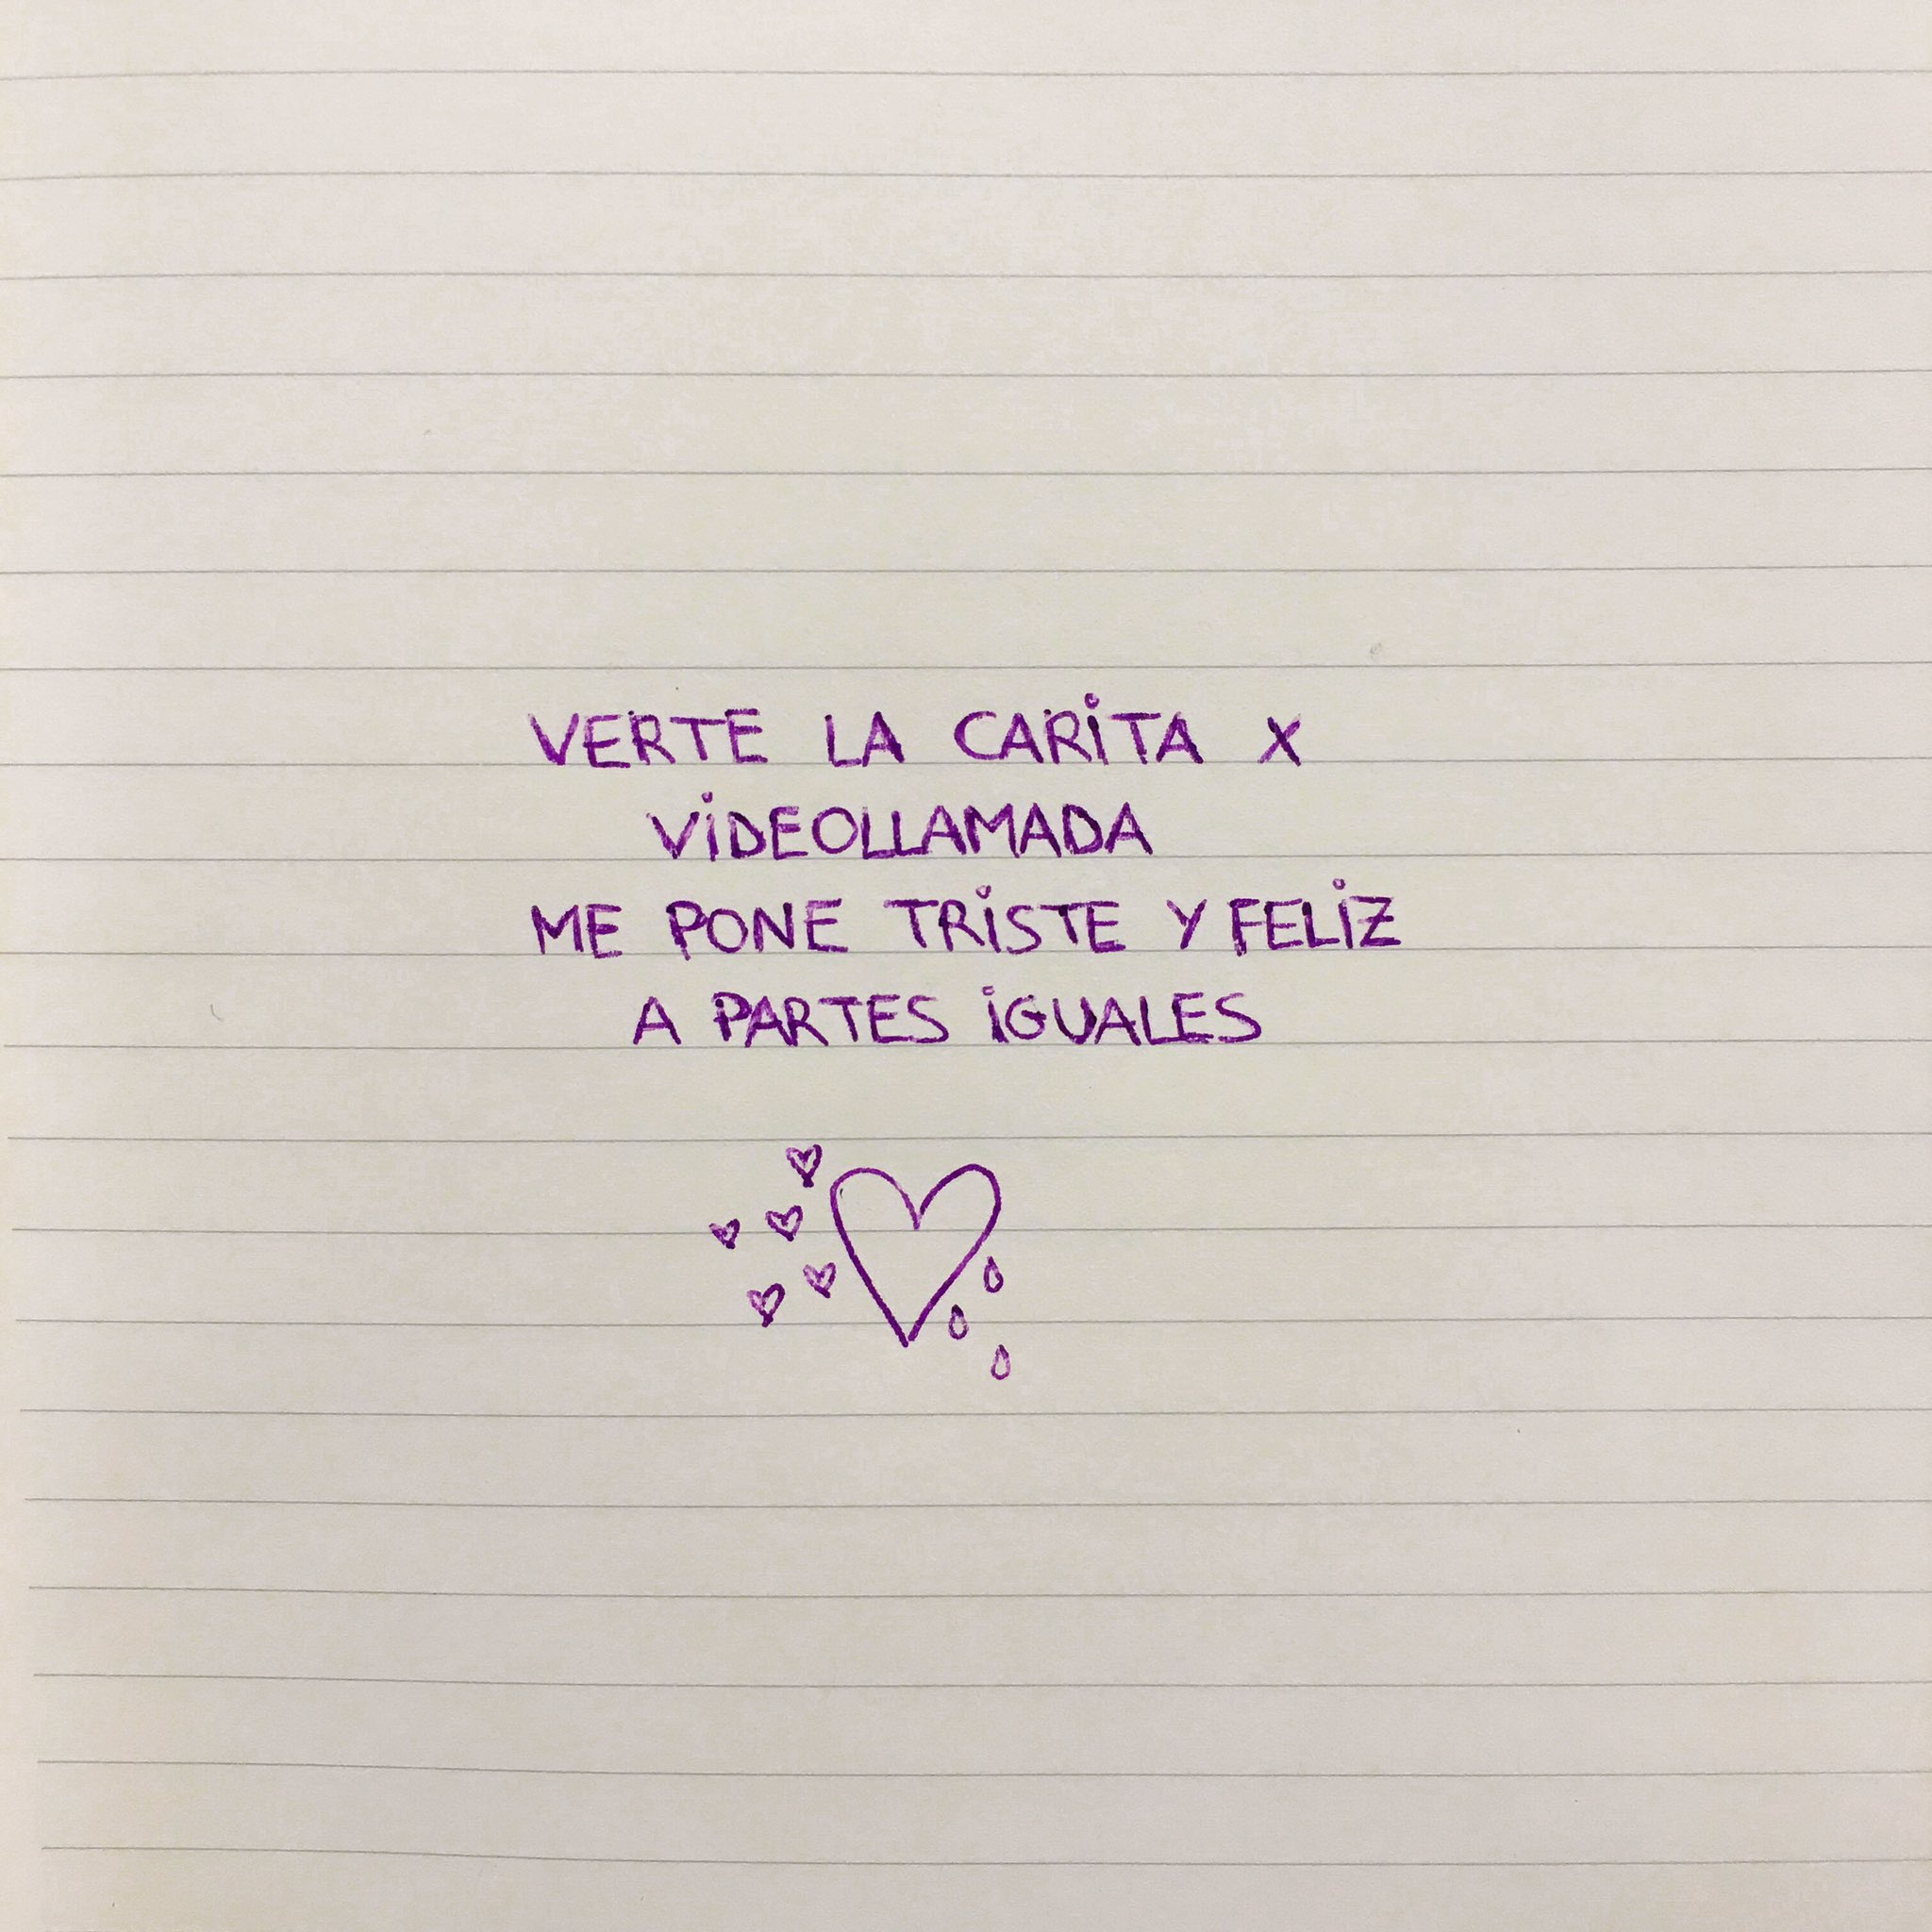 VERTE LA CARiTA X
ViDEOLLAMADA
ME PONE TRiSTE Y FELiZ
A PARTES iGUALES